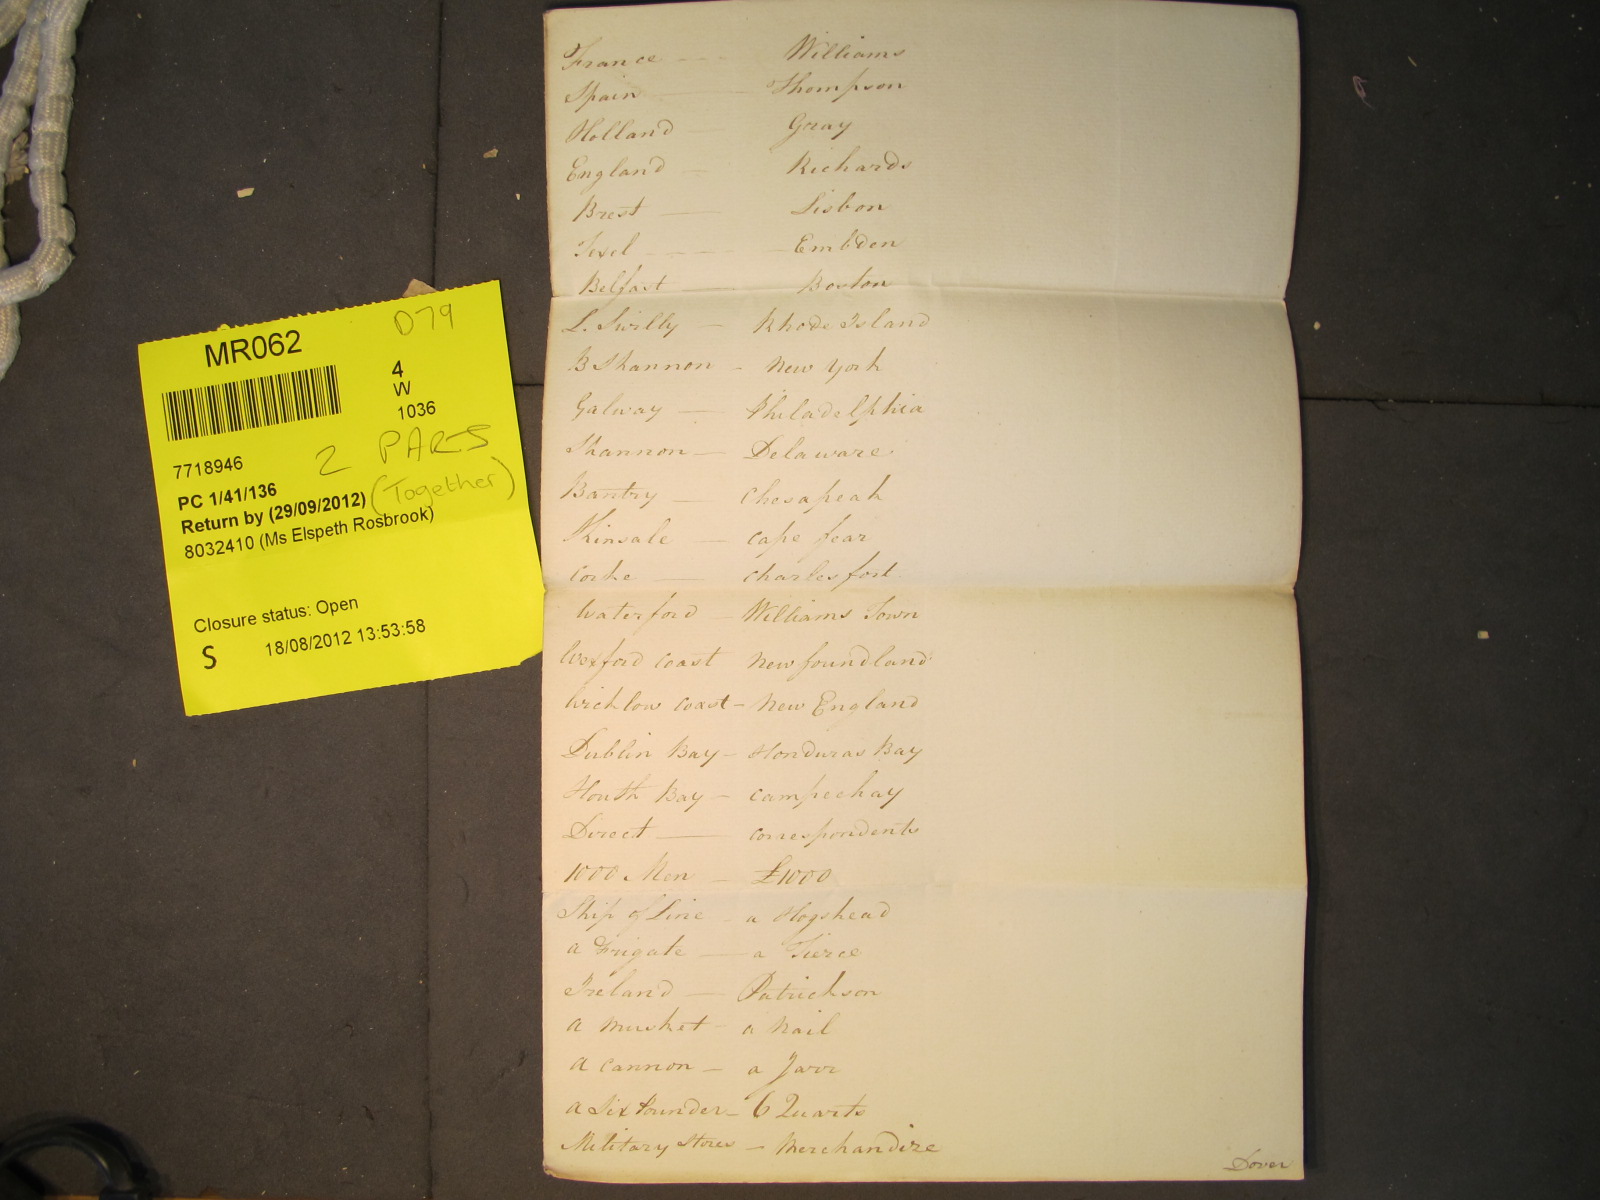 MR062
D79
4
W
1036
7718946
2 PARTS
PC 1/41/136
(Together)
Return by (29/09/2012)
8032410 (Ms Elspeth Rosbrook)
Closure status: Open
S 18/08/2012 13:53:58
France - - - Williams
Spain — Thompson
Holland — Gray
England — Richards
Brest — Lisbon
Texel — Embden
Belfast — Boston
L. Swilly — Rhode Island
B Shannon - New York
Galway — Philadelphia
Shannon — Delaware
Bantry — Chesapeak
Kinsale — Cape fear
Corke — Charles fort.
Waterford — Williams Town
Wexford Coast Newfoundland
Wicklow Coast - New England
Dublin Bay - Honduras Bay
Houth Bay - Campechay
Direct — correspondents
1000 Men - £1000
Ship of Line - a Hogshead
a Frigate — a Tierce
Ireland — Patrickson
a Musket - a Nail
a cannon — a Jarr
a Six Pounder - 6 Quarts
Military Stores — Merchandize
Dover